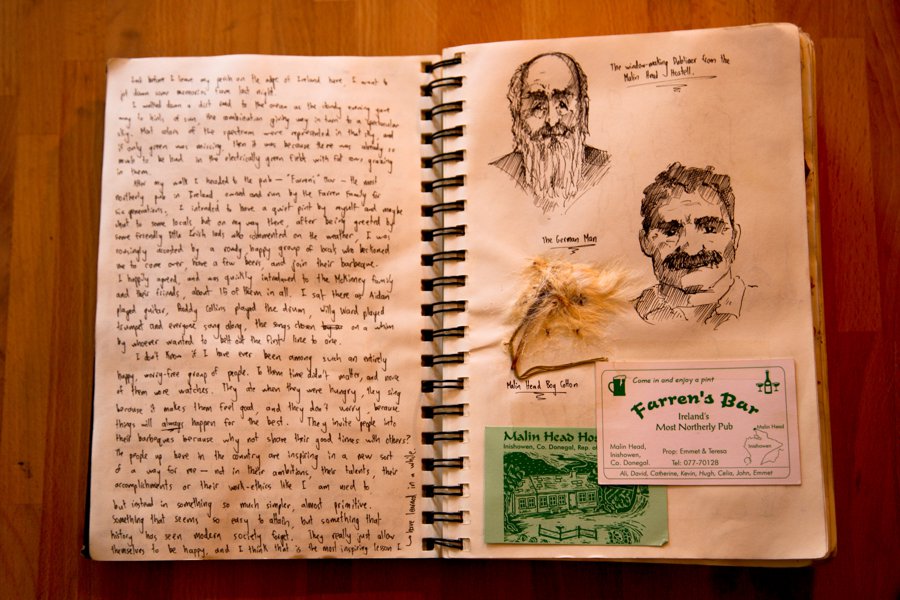 Just before I leave my perch on the edge of Ireland here, I want to
jot down some memories from last night.
I walked down a dirt road to the ocean as the cloudy evening gave
way to hints of sun, the combination giving way in turn to a spectacular
sky. Most colors of the spectrum were represented in that sky, and
if only green was missing, then it was because there was already so
much to be had in the electrically green fields with fat cows grazing
in them.
After my walk I headed to the pub — "Farren's" Bar — the most
northerly pub in Ireland owned and run by the Farren family for
six generations. I intended to have a quiet pint by myself and maybe
chat to some locals but on my way there, after being greeted by
some friendly little Irish lads who commented on the weather, I was
rousingly accosted by a rowdy happy group of locals who beckoned
me to come over have a few beers and join their barbeque.
I happily agreed, and was quickly introduced to the McKinney family
and their friends, about 15 of them in all. I sat there as Aidan
played guitar, Paddy Collins played the drum, Willy Ward played
trumpet and everyone sang along, the songs chosen on a whim
by whoever wanted to belt out the first line to one.
I don't know if I have ever been among such an entirely
happy, worry-free group of people. To them time didn't matter, and none
of them wore watches. They ate when they were hungry, they sing
because it makes them feel good, and they don't worry, because
things will always happen for the best. They invite people into
their barbeques because why not share their good times with others?
The people up here in the country are inspiring in a new sort
of a way for me — not in their ambitions, their talents, their
accomplishments or their work-ethics like I am used to
but instead in something so much simpler, almost primitive.
Something that seems so easy to attain, but something that
history has seen modern society forget. They really just allow
themselves to be happy, and I think that is the most inspiring lesson I
have learned in a while.
The window-making Dubliner from the
Malin Head Hostell.
The German Man
Malin Head Bog Cotton
Malin Head Hos
Inishowen, Co. Donegal, Rep. of
Come in and enjoy a pint
Farren's Bar
Ireland's
Most Northerly Pub
Malin Head
Inishowen
Malin Head,
Inishowen,
Co. Donegal.
Prop: Emmet & Teresa
Tel: 077-70128
Ali, David, Catherine, Kevin, Hugh, Celia, John, Emmet